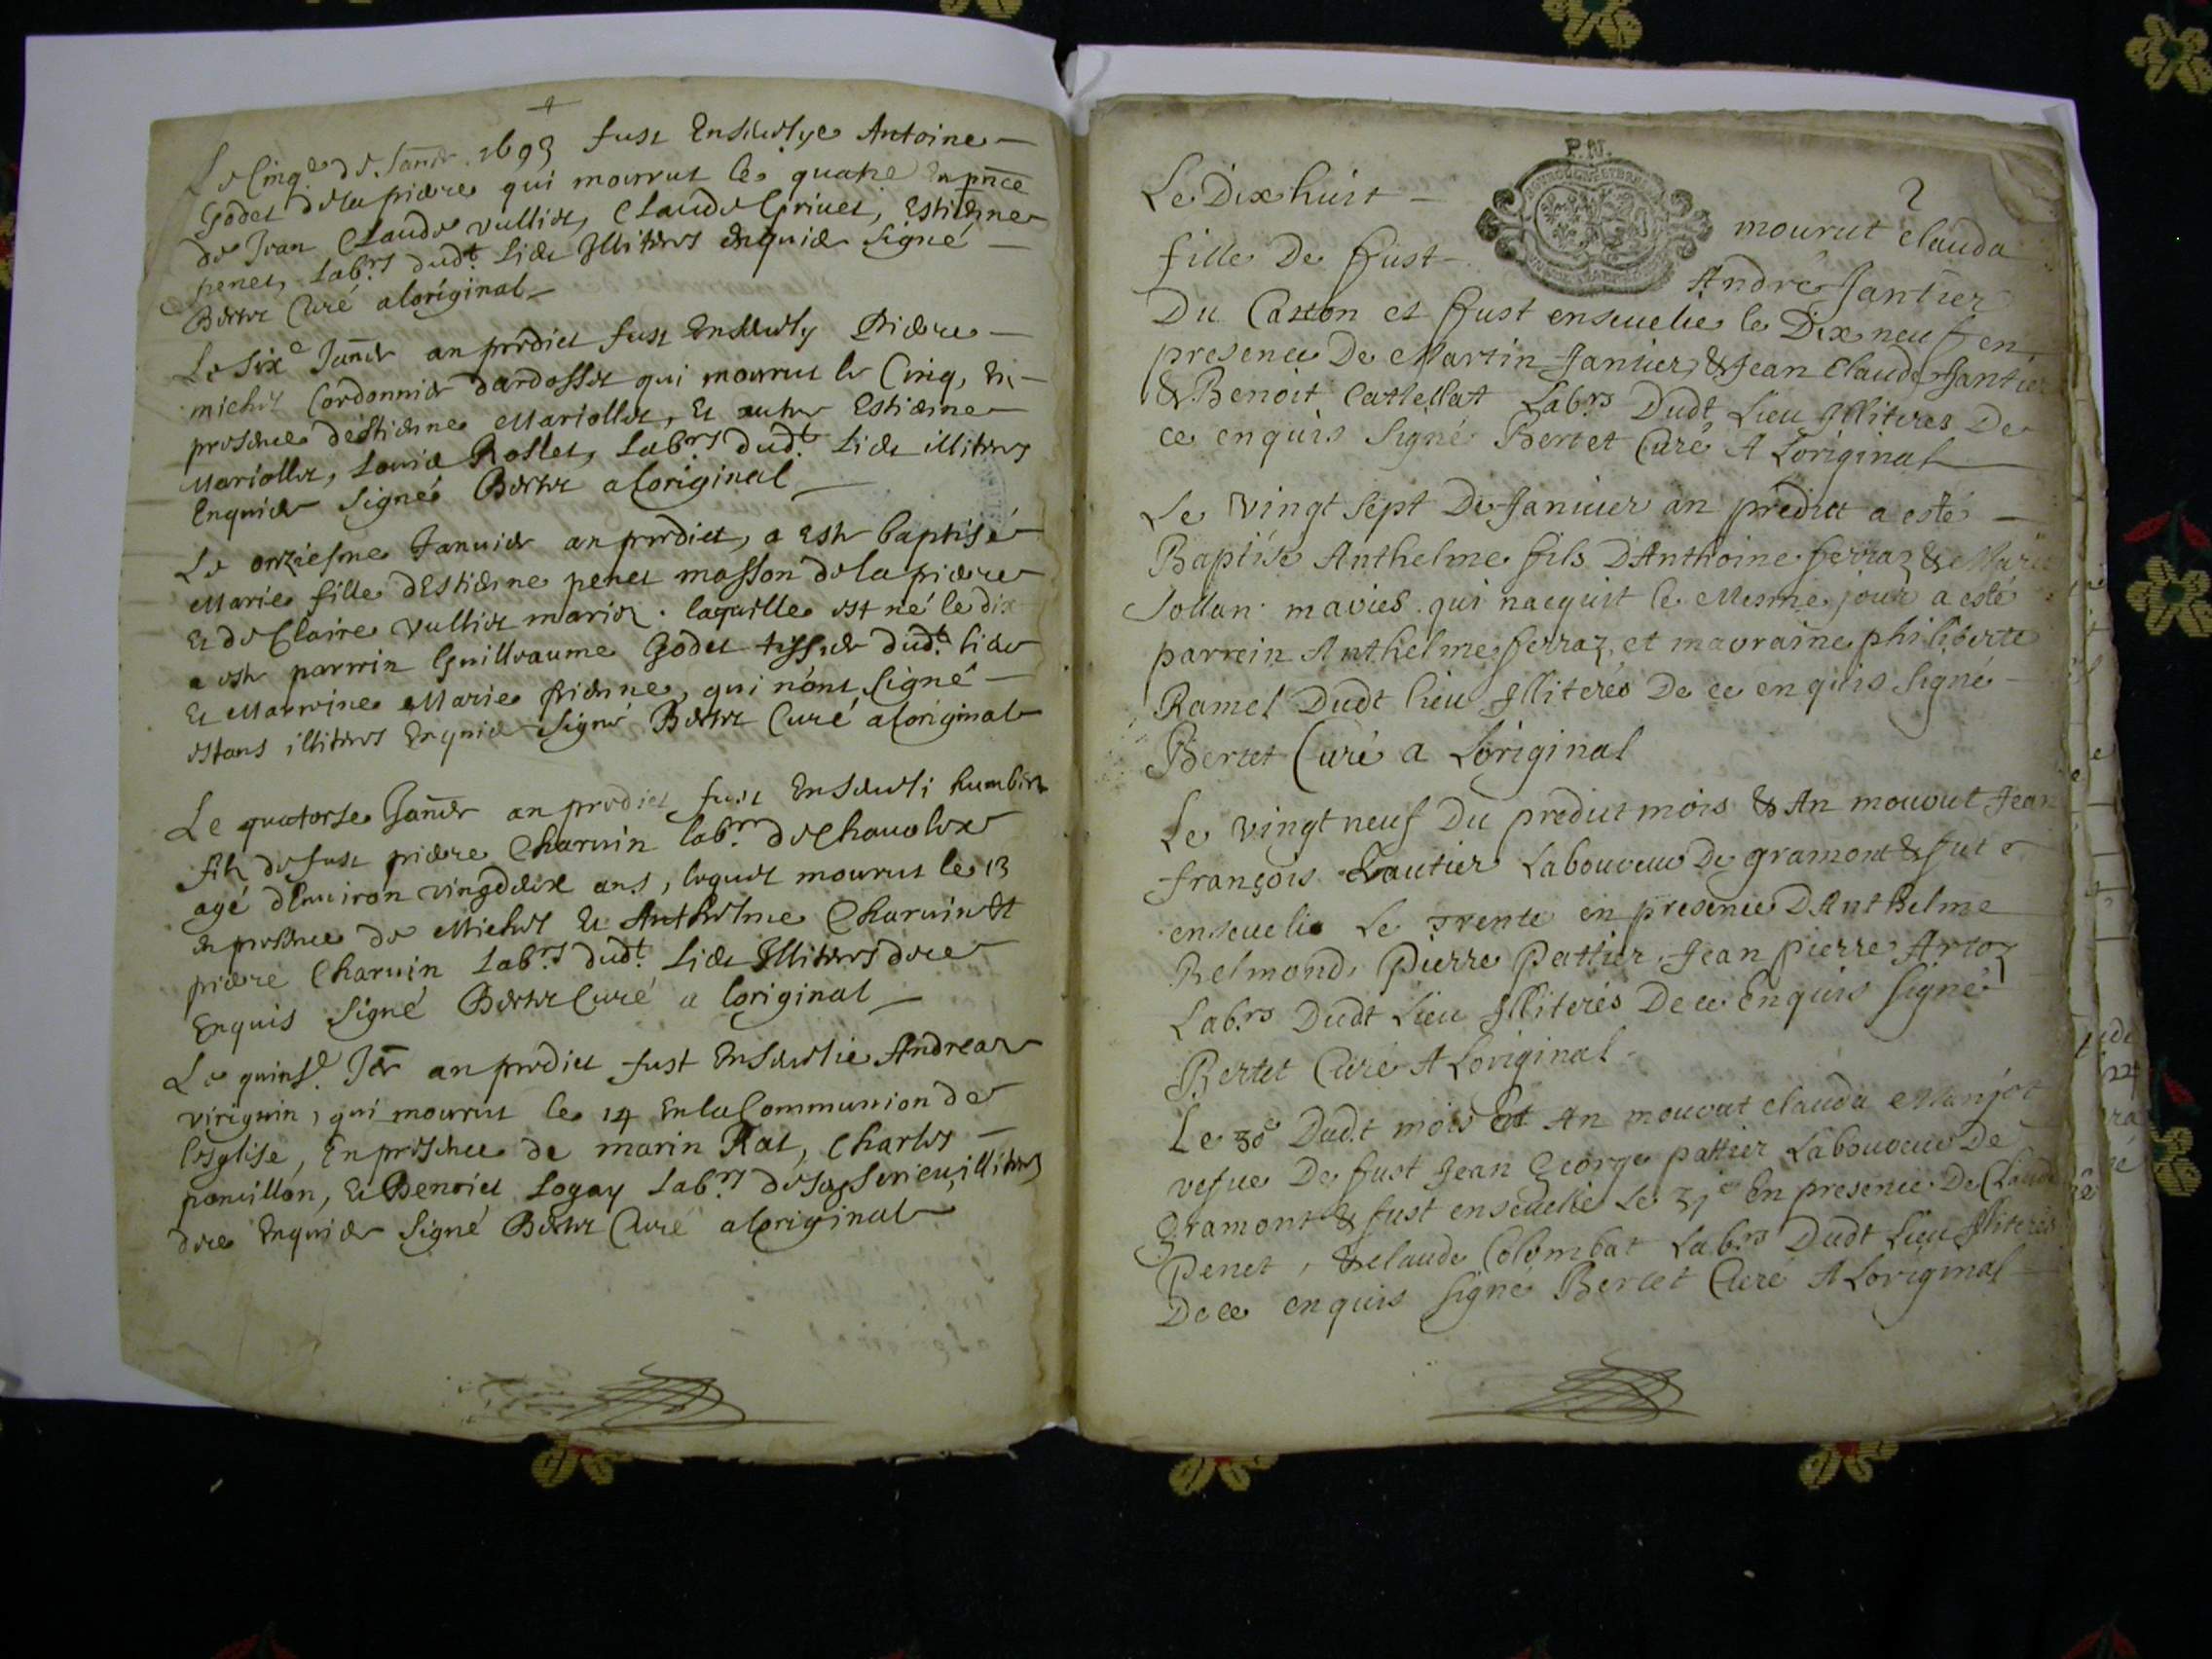 Le Cinq.e de Janer. 1693 fust Enseuelye Antoine
Godet dela pierre qui mourut le quatre En pnce
de Jean Claude vulliet, Claude Griuet, Estienne
penet, Labrs dudt. Lieu Illiteres enquis signé
Bertet Curé aloriginal
Le six.e Janer an predict fust Enseuely Pierre
michel Cordonnier dardosset qui mourut le Cinq, En
presence destienne Mariollet, Et autre Estienne
Mariollet, Louis Rosset, Labrs dudt. Lieu illiteres
Enquis signé Bertet aloriginal
Le onziesme Januier an predict, a Este baptisé
Marie fille dEstienne penet masson dela pierre
Et de Claire vulliet mariez. laquelle est né le dix
a este parrin Guilleaume Godet tissier dudt. lieu
Et Marrine Marie Pienne, qui nont signé
estans illiteres Enquis signé Bertet Curé aloriginal
Le quatorse Janer an predict fust Enseueli humbert
filz de fust pierre Charuin labr. de
agé dEnuiron vingdeux ans, lequel mourut le 13
En presence de Michel Et Anthelme Charuin Et
pierre Charuin Labrs dudt. Lieu Illiteres de ce
Enquis signé Bertet Curé a loriginal
Le quinse. Jer an predict fust Enseuelie Andrea
viriguin, qui mourut le 14 En la Communion de
lesglise, En presence de marin Rat, Charles
ponuillon, Et Benoict Logay Labrs de illiteres
de ce Enquis signé Bertet Curé aloriginal
P.N.
2
Le Dix huit mourut clauda
fille De fust André Jantier
Du Catton et fust enseuelie le Dix neuf en
presence De Martin Jantier, & Jean Claude Jantier
& Benoit Cattellat Labrs Dudt Lieu Illiteres De
ce enquis signé Bertet Curé A Loriginal
Le vingt sept De Januier an predict a esté
Baptise Anthelme fils D'Anthoine ferraz & Marie
Jollan maries qui naequit le Mesme jour a esté
parrein Anthelme ferraz, et mavraine philiberte
Ramel Dudt lieu Illiterés De ce enquis signé
Bertet Curé a Loriginal
Le vingt neuf Du predict mois & An mourut Jean
françois Gautier Laboureur De gramont & fut
enseuelie Le Trente en presence D'Anthelme
Belmond, Pierre Pattier, Jean pierre Artoz
Labrs Dudt Lieu Illiterés De ce Enquis signé
Bertet Curé A Loriginal
Le 30e Dudt mois Et An mourut clauda Manjot
vefue De fust Jean George pattier Laboureur De
gramont & fust enseuelie Le 31e En presence De Claude
Penet, & claude Colombat Labrs Dudt Lieu Illiterés
De ce enquis signé Bertet Curé A Loriginal